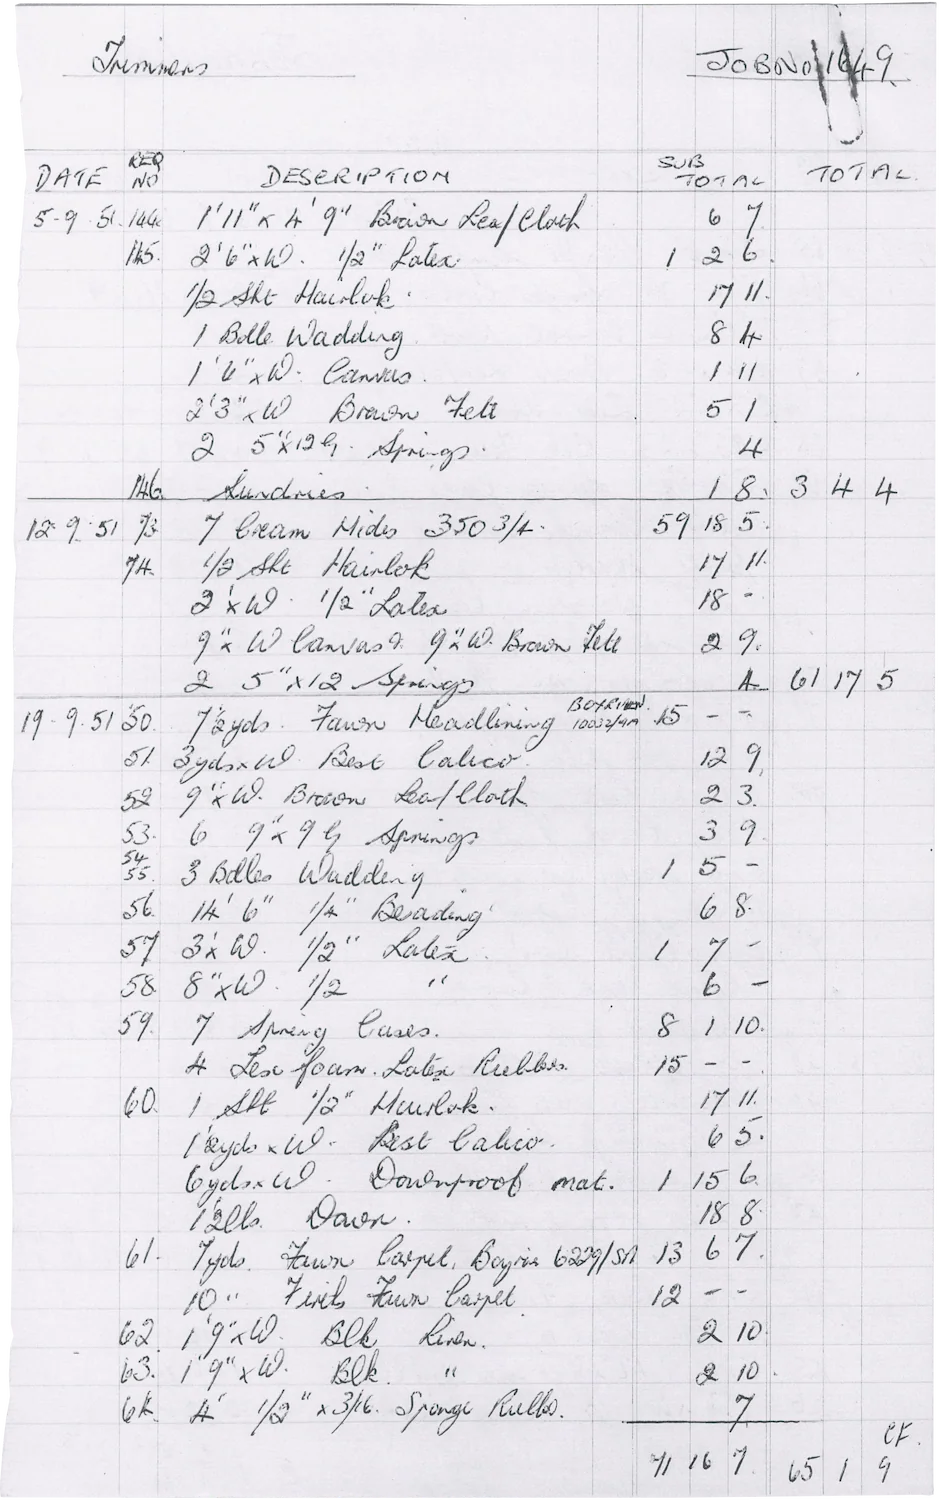 Trimmers JOB NO 1649
DATE REQ NO DESCRIPTION SUB TOTAL TOTAL.
5-9-51. 144. 1'11" x 4'9" Brown Lea/Cloth 6 7
145. 2'6" x W. 1/2" Latex. 1 2 6.
1/2 Sht Hairlok. 17 11.
1 Bdle Wadding 8 4
1'6" x W. Canvas. 1 11
2'3" x W Brown Felt 5 1
2 5" x 12 G. Springs. 4
146. Sundries. 1 8. 3 4 4
12-9-51 73. 7 Cream Hides 350 3/4. 59 18 5.
74. 1/2 Sht Hairlok 17 11.
2' x W. 1/2" Latex 18 -
9" x W Canvas & 9" x W. Brown Felt 2 9.
2 5" x 12 Springs 4 61 17 5
19-9-51 50. 7½yds. Fawn Headlining 10032/9A 15 - -
51. 3yds x W. Best Calico. 12 9.
52 9" x W. Brown Lea/Cloth 2 3.
53. 6 9" x 9 G Springs 3 9.
54 55. 3 Bdles Wadding 1 5 -
56. 14' 6" 1/4" Beading 6 8.
57 3' x W. 1/2" Latex. 1 7 -
58 8" x W. 1/2 " 6 -
59. 7 Spring Cases. 8 1 10.
4 Latex Rubber. 15 - -
60. 1 Sht 1/2" Hairlok. 17 11.
1½yds x W. Best Calico. 6 5.
6yds x W. Downproof mat. 1 15 6.
1½lbs. Down. 18 8.
61. 7yds. Fawn Carpet. 13 6 7.
10 " Firth Fawn Carpet 12 - -
62. 1'9" x W. Blk Linen. 2 10.
63. 1'9" x W. Blk. " 2 10.
64. 4' 1/2" x 3/16. Sponge Rubber. 7
CF.
71 16 7. 65 1 9